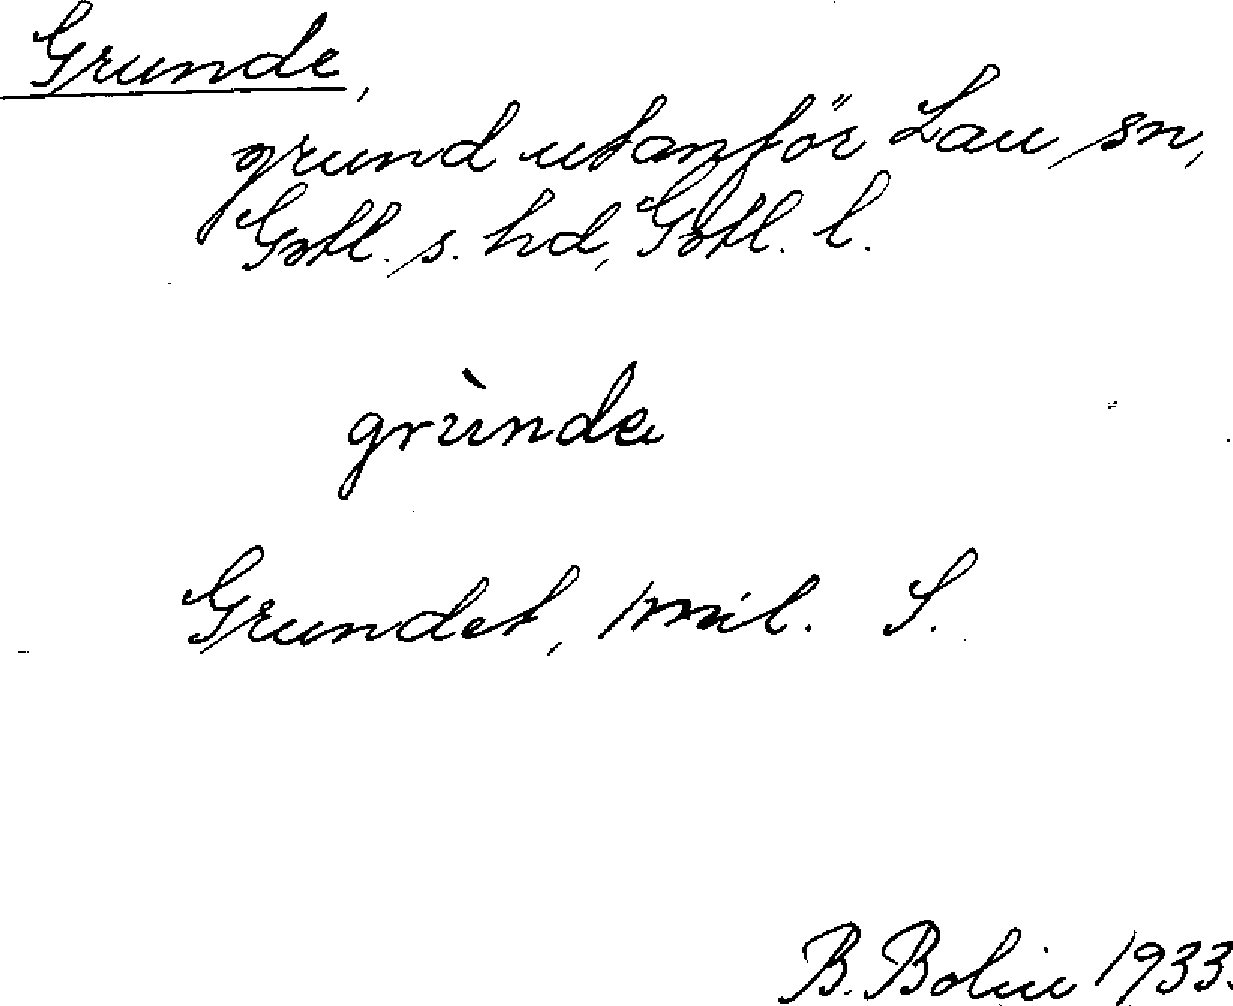 Grunde,
grund utanför Lau sn,
Gotl. s. hd, Gotl. l.
grùnde
Grundet, /mil. S.
B. Bolin 1933.